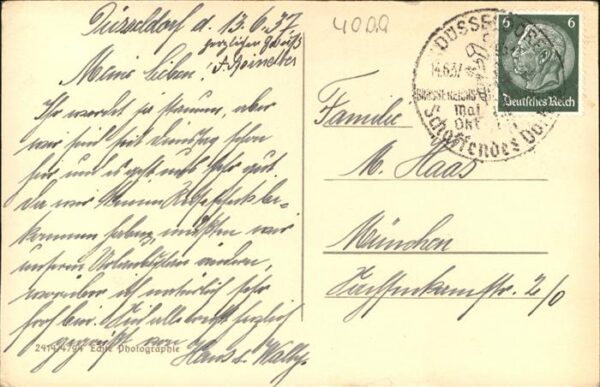 Düsseldorf d. 13.6.37
herzlichen Gruß
Meine Lieben!
Ihr werdet ja staunen, aber
wir sind seit Dienstag schon
hier und es geht uns sehr gut.
Da wir keinen
bekommen haben, mußten wir
unseren Urlaubsplan ändern,
worüber ich natürlich sehr
froh bin. Euch alle recht herzlich
gegrüßt von Hans u. Wally.
2414/4794 Echte Photographie
4000
DÜSSELDORF
14.6.37
Mai
Okt
Schaffendes
6 6
Deutsches Reich
Familie
M. Haas
München
2/0